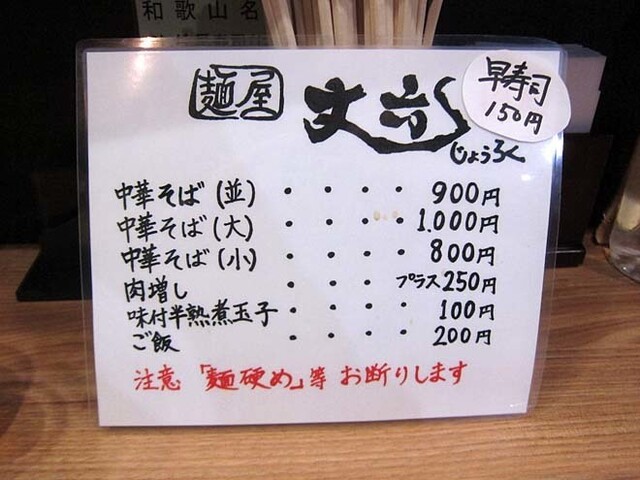 和歌山名
麺屋 丈六
じょうろく
早寿司
150円
中華そば(並)・・・・900円
中華そば(大)・・・・1,000円
中華そば(小)・・・・800円
肉増し・・・・プラス250円
味付半熟煮玉子・・・・100円
ご飯・・・・200円
注意 「麺硬め」等 お断りします